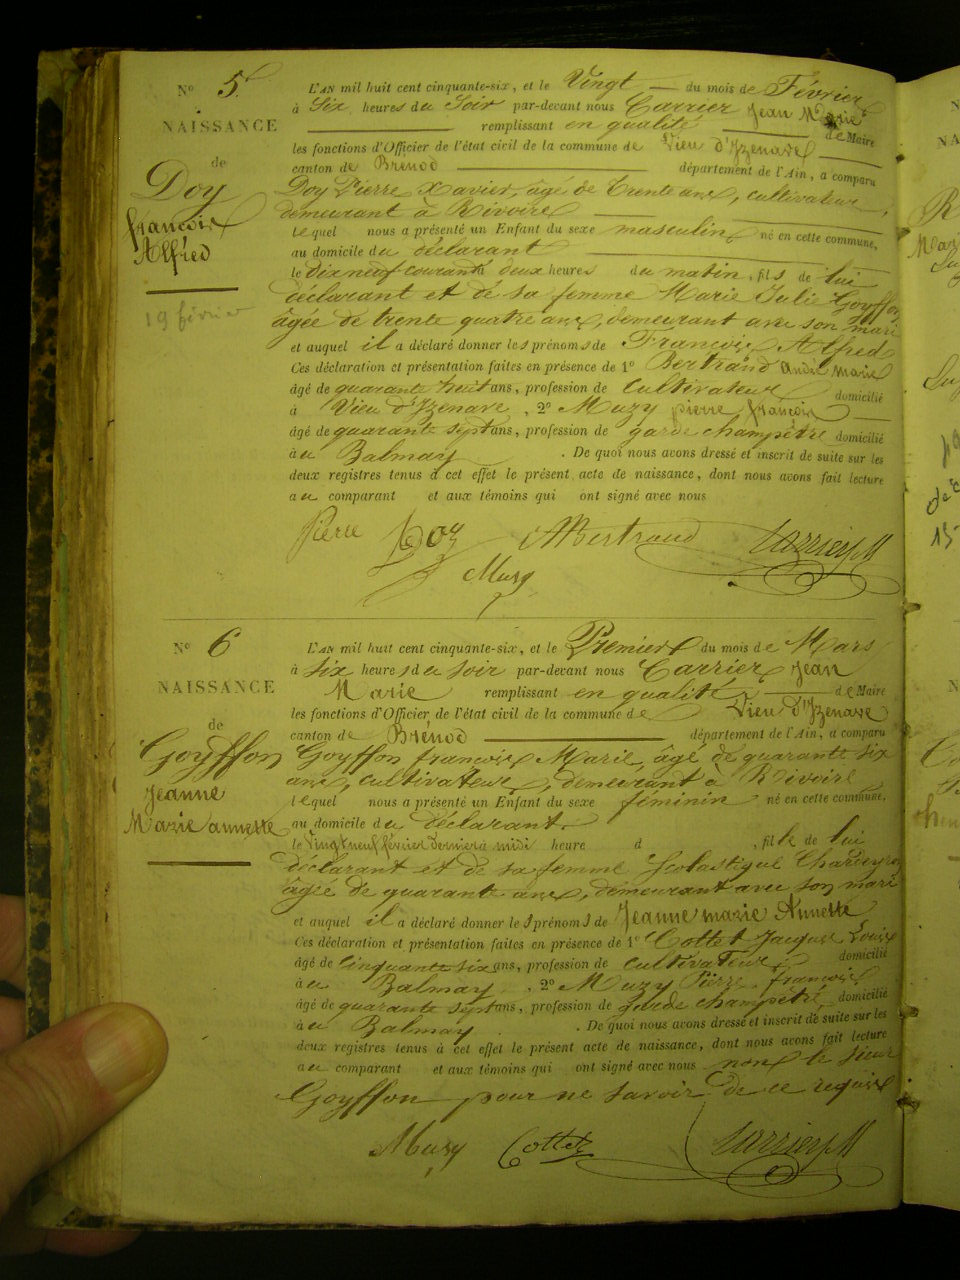 N° 5
NAISSANCE
de
Doy
françois
Alfréd
19 février
L'AN mil huit cent cinquante-six, et le Vingt du mois de Février
à Six heures du Soir par-devant nous Carrier Jean Marie
remplissant en qualité de Maire
les fonctions d'Officier de l'état civil de la commune de Vieu d'Izenave
canton de Brénod département de l'Ain, a comparu
Doy Pierre Xavier, âgé de Trente ans, cultivateur,
demeurant à Rivoire
lequel nous a présenté un Enfant du sexe masculin né en cette commune,
au domicile du déclarant
le dix neuf courant à deux heures du matin, fils de lui
déclarant et de sa femme Marie Julie Goyffon
âgée de trente quatre ans, demeurant avec son mari
et auquel il a déclaré donner les prénoms de François Alfred
Ces déclaration et présentation faites en présence de 1° Bertrand André Marie
âgé de quarante huit ans, profession de Cultivateur domicilié
à Vieu d'Izenave, 2° Muzy pierre françois
âgé de quarante sept ans, profession de garde champêtre domicilié
au Balmay. De quoi nous avons dressé et inscrit de suite sur les
deux registres tenus à cet effet le présent acte de naissance, dont nous avons fait lecture
au comparant et aux témoins qui ont signé avec nous
Pierre Doy ABertrand Carrier JM
Muzy
N° 6
NAISSANCE
de
Goyffon
Jeanne
Marie annette
L'AN mil huit cent cinquante-six, et le Premier du mois de Mars
à Six heures du soir par-devant nous Carrier Jean
Marie remplissant en qualité de Maire
les fonctions d'Officier de l'état civil de la commune de Vieu d'Izenave
canton de Brénod département de l'Ain, a comparu
Goyffon françois Marie, âgé de quarante six
ans, cultivateur, demeurant à Rivoire
lequel nous a présenté un Enfant du sexe féminin né en cette commune,
au domicile du déclarant.
le vingt neuf février dernier à midi heure d , fille de lui
déclarant et de sa femme Scolastique Charveyron
âgée de quarante ans, demeurant avec son mari
et auquel il a déclaré donner les prénoms de Jeanne marie Annette
Ces déclaration et présentation faites en présence de 1° Cottet Jacques Louis
âgé de cinquante six ans, profession de cultivateur domicilié
au Balmay, 2° Muzy Pierre françois
âgé de quarante sept ans, profession de garde champêtre domicilié
au Balmay. De quoi nous avons dressé et inscrit de suite sur les
deux registres tenus à cet effet le présent acte de naissance, dont nous avons fait lecture
au comparant et aux témoins qui ont signé avec nous non le sieur
Goyffon pour ne savoir de ce requis
Muzy Cottet Carrier JM